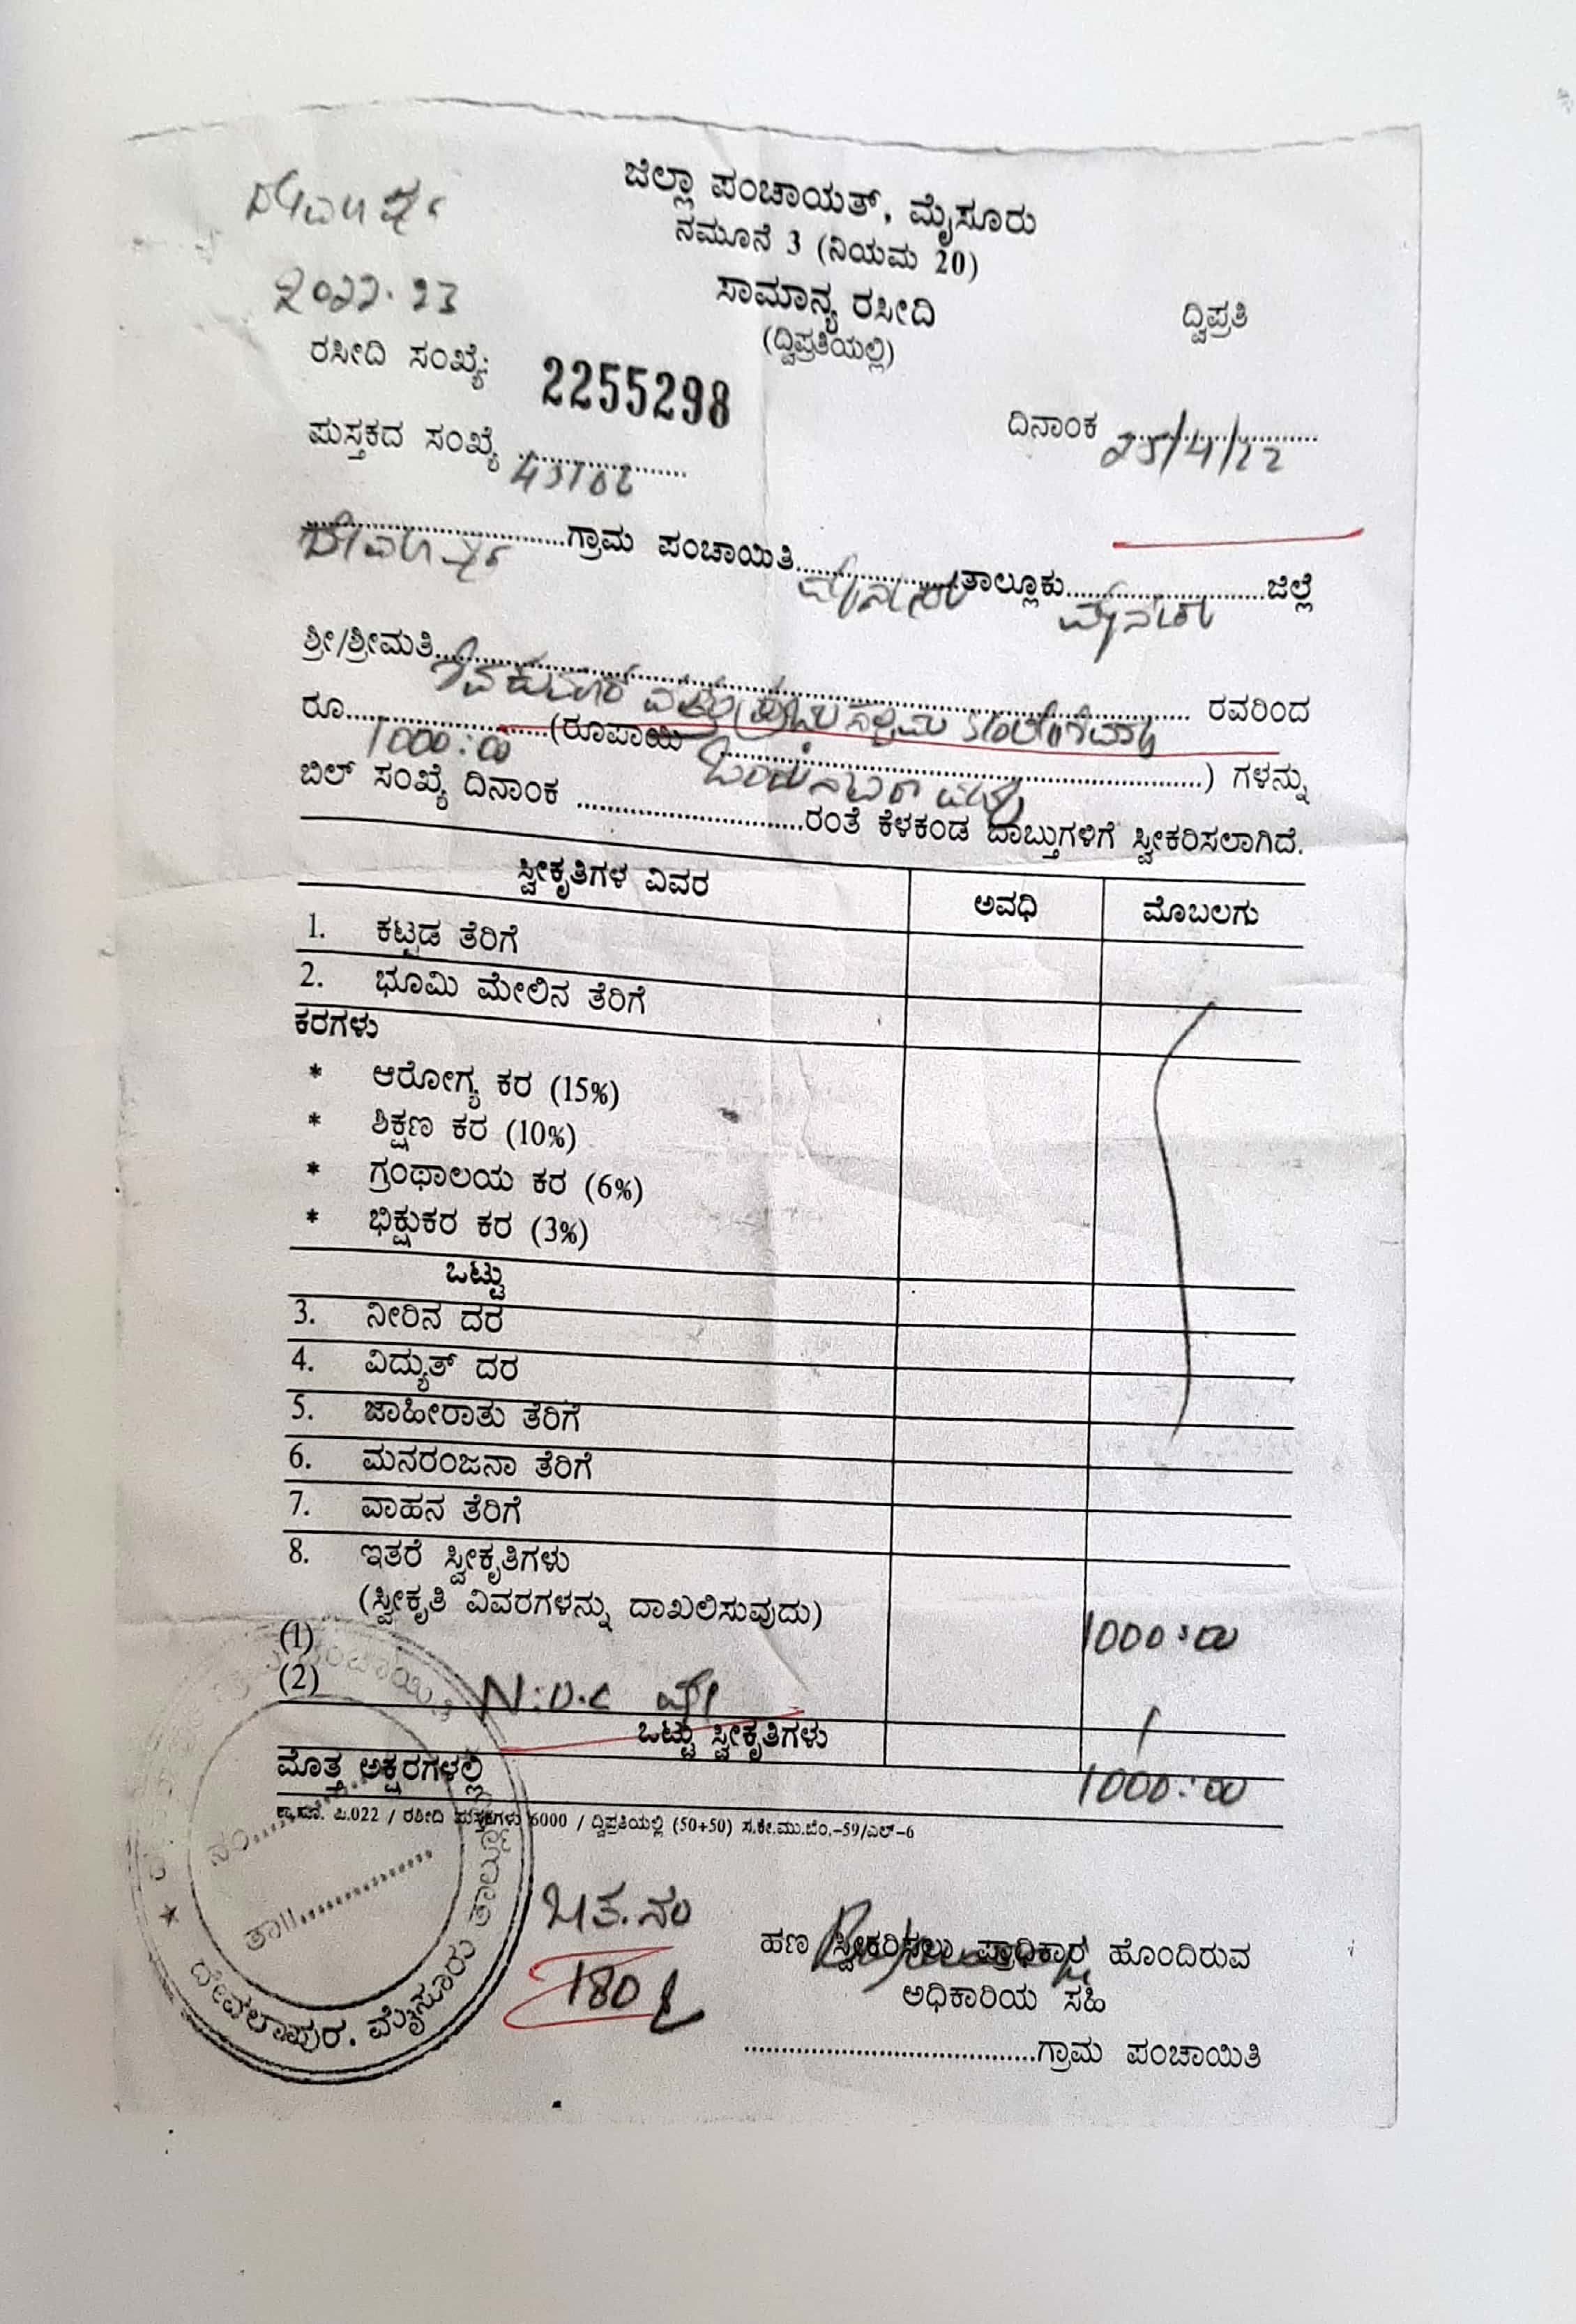 ಜಿಲ್ಲಾ ಪಂಚಾಯತ್, ಮೈಸೂರು
ನಮೂನೆ 3 (ನಿಯಮ 20)
2022-23
ಸಾಮಾನ್ಯ ರಸೀದಿ
ದ್ವಿಪ್ರತಿ
(ದ್ವಿಪ್ರತಿಯಲ್ಲಿ)
ರಸೀದಿ ಸಂಖ್ಯೆ: 2255298
ದಿನಾಂಕ 25/4/22
ಪುಸ್ತಕದ ಸಂಖ್ಯೆ
ಗ್ರಾಮ ಪಂಚಾಯಿತಿ ಮೈಸೂರು ತಾಲ್ಲೂಕು ಮೈಸೂರು ಜಿಲ್ಲೆ
ಶ್ರೀ/ಶ್ರೀಮತಿ ಶಿವಕುಮಾರ್ ಮತ್ತು ರವರಿಂದ
ರೂ 1000:00 (ರೂಪಾಯಿ ಒಂದು ಸಾವಿರ ಮಾತ್ರ) ಗಳನ್ನು
ಬಿಲ್ ಸಂಖ್ಯೆ ದಿನಾಂಕ ರಂತೆ ಕೆಳಕಂಡ ಬಾಬ್ತುಗಳಿಗೆ ಸ್ವೀಕರಿಸಲಾಗಿದೆ.
ಸ್ವೀಕೃತಿಗಳ ವಿವರ ಅವಧಿ ಮೊಬಲಗು
1. ಕಟ್ಟಡ ತೆರಿಗೆ
2. ಭೂಮಿ ಮೇಲಿನ ತೆರಿಗೆ
ಕರಗಳು
* ಆರೋಗ್ಯ ಕರ (15%)
* ಶಿಕ್ಷಣ ಕರ (10%)
* ಗ್ರಂಥಾಲಯ ಕರ (6%)
* ಭಿಕ್ಷುಕರ ಕರ (3%)
ಒಟ್ಟು
3. ನೀರಿನ ದರ
4. ವಿದ್ಯುತ್ ದರ
5. ಜಾಹೀರಾತು ತೆರಿಗೆ
6. ಮನರಂಜನಾ ತೆರಿಗೆ
7. ವಾಹನ ತೆರಿಗೆ
8. ಇತರೆ ಸ್ವೀಕೃತಿಗಳು
(ಸ್ವೀಕೃತಿ ವಿವರಗಳನ್ನು ದಾಖಲಿಸುವುದು)
(1) 1000:00
(2)
ಒಟ್ಟು ಸ್ವೀಕೃತಿಗಳು
ಮೊತ್ತ ಅಕ್ಷರಗಳಲ್ಲಿ 1000:00
ಪಿ.022 / ರಶೀದಿ ಪುಸ್ತಕಗಳು 6000 / ದ್ವಿಪ್ರತಿಯಲ್ಲಿ (50+50) ಸ.ಕೇ.ಮು.ಬೆಂ.-59/ಎಲ್-6
ನಂ
ತಾ॥
ದೇವಲಾಪುರ. ಮೈಸೂರು ತಾಲ್ಲೂಕು
ಹಣ ಸ್ವೀಕರಿಸಲು ಪ್ರಾಧಿಕಾರ ಹೊಂದಿರುವ
180
ಅಧಿಕಾರಿಯ ಸಹಿ
ಗ್ರಾಮ ಪಂಚಾಯಿತಿ